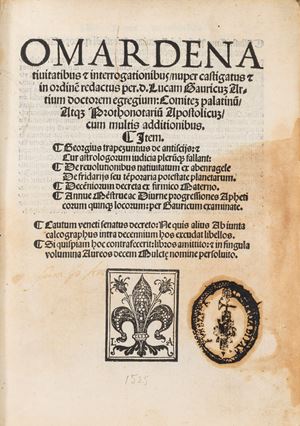 OMAR DE NA
tiuitatibus & interrogationibus/nuper castigatus &
in ordinē redactus per.d.Lucam Gauricuʒ Ar-
tium doctorem egregium: Comiteʒ palatinū/
Atqʒ Prothonotariū Apostolicuʒ/
cum multis additionibus.
¶ Item.
¶ Georgius trapezuntius de antiscijs: &
Cur astrologorum iudicia plerūqʒ fallant:
¶ De reuolutionibus natiuitatum ex abenragele
De fridarijs seu tēporaria potestate planetarum.
¶ Decēniorum decreta ex firmico Materno.
¶ Annue Mēstrue ac Diurne progressiones Apheti
corum quinqʒ locorum: per Gauricum examinate.
¶ Cautum veneti senatus decreto: Ne quis alius Ab iunta
calcographus intra decennium hos excudat libellos.
¶ Si quispiam hoc contrafecerit: libros amittito: & in singula
volumina Aureos decem Mulctę nomine persoluito.
L A
1525